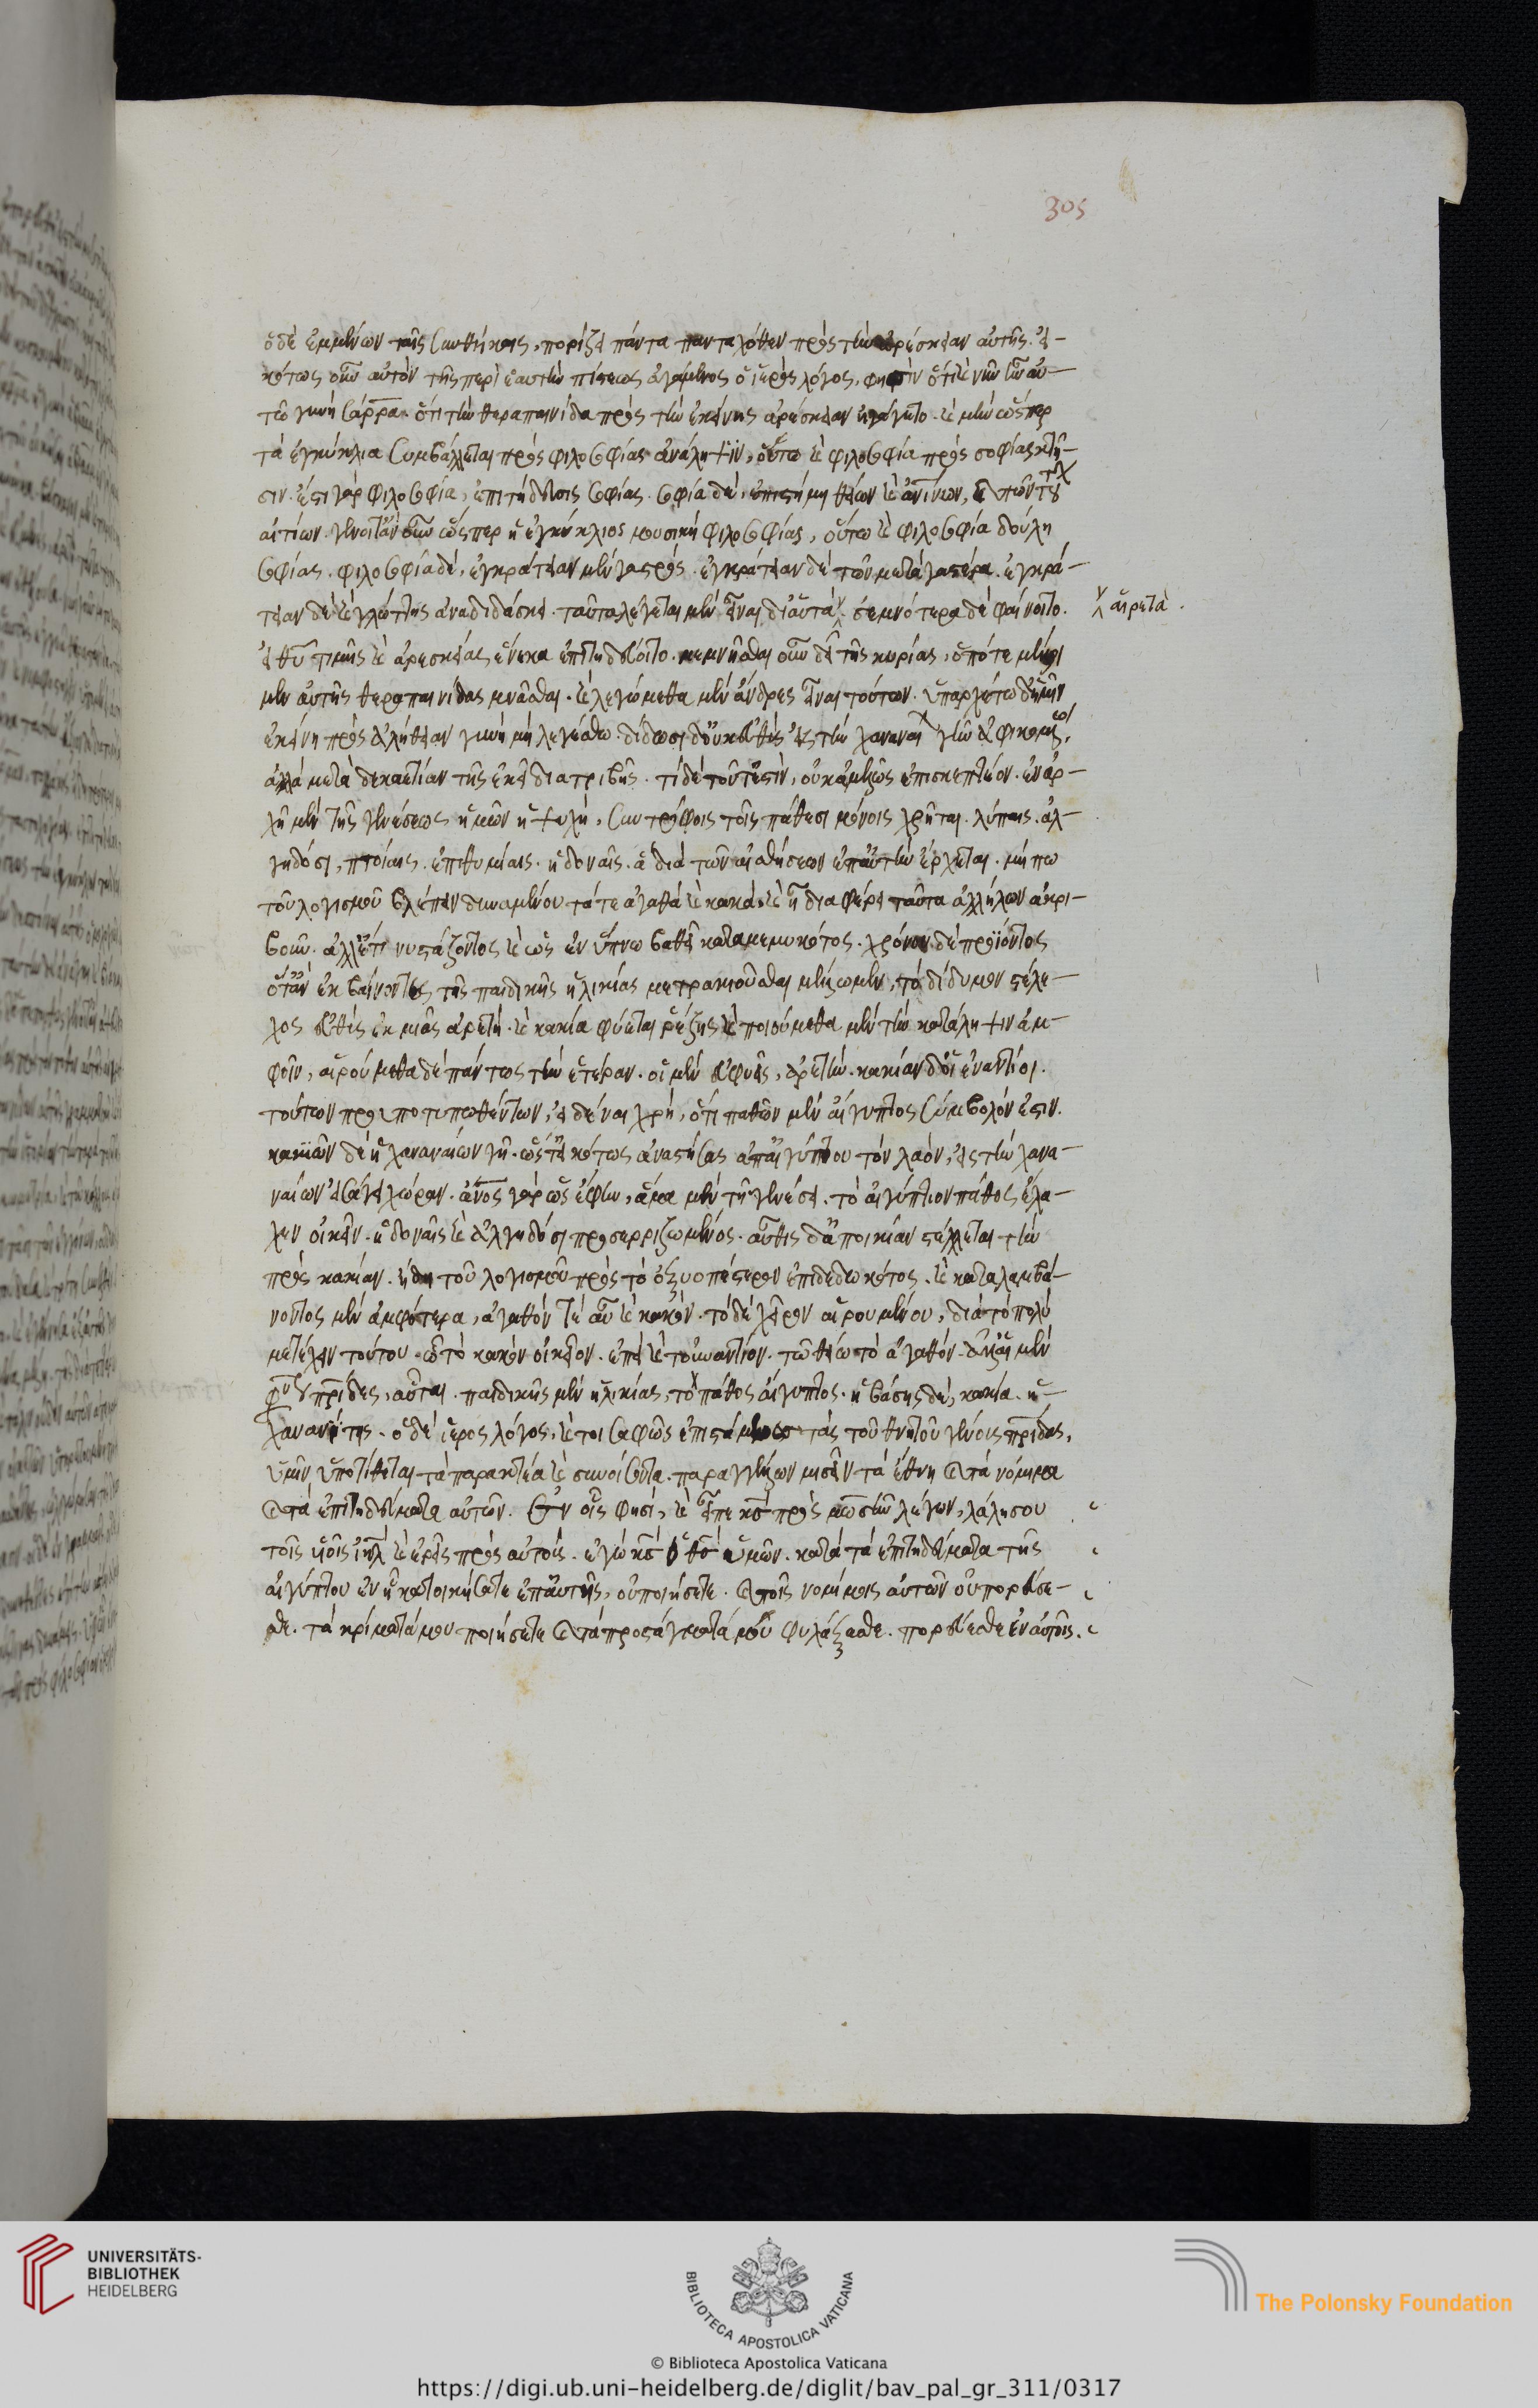 305
ὁ δὲ ἐμμένων ταῖς συνθήκαις, πορίζει πάντα πανταχόθεν πρὸς τὴν ἀρέσκειαν αὐτῆς. εἰ-
κότως οὖν αὐτὸν τῆς περὶ ἑαυτὴν πίστεως ἀγάμενος ὁ ἱερὸς λόγος, φησὶν ὅτι
γυνὴ σάρρα. ὅτι τὴν θεραπαινίδα πρὸς τὴν ἐκείνης ἀρέσκειαν ἠγάγετο. καὶ μὴν ὥσπερ
τὰ ἐγκύκλια συμβάλλεται πρὸς φιλοσοφίας ἀνάληψιν, οὕτω καὶ φιλοσοφία πρὸς σοφίας κτῆ-
σιν. ἔστι γὰρ φιλοσοφία, ἐπιτήδευσις σοφίας. σοφία δὲ, ἐπιστήμη θείων καὶ ἀνίνων, καὶ τῶν τούτων
αἰτίων. γένοιτ' ἂν οὖν ὥσπερ ἡ ἐγκύκλιος μουσικὴ φιλοσοφίας, οὕτω καὶ φιλοσοφία δούλη
σοφίας. φιλοσοφία δὲ, ἐγκράτειαν μὲν γαστρὸς. ἐγκράτειαν δὲ τῶν μετὰ γαστέρα. ἐγκρά-
τειαν δὲ καὶ γλώττης ἀναδιδάσκει. ταῦτα λέγεται μὲν εἶναι δι' αὑτὰ. σεμνότερα δὲ φαίνοιτο.
αἱρετὰ.
εἰ θυ τιμῆς καὶ ἀρεσκείας ἕνεκα ἐπιτηδεύοιτο. μεμνῆσθαι οὖν δεῖ τῆς κυρίας, ὁπότε μέλλοι
μεν αὐτῆς θεραπαινίδας μνᾶσθαι. καὶ λεγώμεθα μὲν ἄνδρες εἶναι τούτων. ὑπαρχέτω δ' ἡμῖν
ἐκείνη πρὸς ἀλήθειαν γυνὴ μὴ λεγέσθω. δίδωσι δ' οὐκ εὐθὺς εἰς τὴν χαναναίων γῆν ἀφικομένω,
ἀλλὰ μετὰ δεκαετίαν τῆς ἐκεῖ διατριβῆς. τί δὲ τοῦτ' ἐστὶν, οὐκ ἀμελῶς ἐπισκεπτέον. ἐν ἀρ-
χῆ μὲν τῆς γενέσεως ἡμῶν ἡ ψυχὴ, συντρόφοις τοῖς πάθεσι μόνοις χρῆται. λύπαις. ἀλ-
γηδόσι, πτοίαις. ἐπιθυμίαις. ἡδοναῖς. ἃ διὰ τῶν αἰσθήσεων ἐπ' αὐτὴν ἔρχεται. μήπω
τοῦ λογισμοῦ βλέπειν δυναμένου τά τε ἀγαθὰ καὶ κακὰ. καὶ ἧ διαφέρει ταῦτα ἀλλήλων ἀκρι-
βοῦν. ἀλλ' ἔτι νυστάζοντος καὶ ὡς ἐν ὕπνω βαθεῖ καταμεμυκότος. χρόνου δὲ προϊόντος
ὅταν ἐκβαίνοντες τῆς παιδικῆς ἡλικίας μειρακιοῦσθαι μέλλωμεν, τὸ δίδυμον στέλε-
χος εὐθὺς ἐκ μιᾶς ἀρετὴ. καὶ κακία φύεται ῥίζης καὶ ποιούμεθα μὲν τὴν κατάληψιν ἀμ-
φοῖν, αἱρούμεθα δὲ πάντως τὴν ἑτέραν. οἱ μὲν εὐφυεῖς, ἀρετὴν. κακίαν δ' οἱ ἐναντίοι.
τούτων προυποτυπωθέντων, εἰδέναι χρὴ, ὅτι παθῶν μὲν αἴγυπτος σύμβολόν ἐστιν.
κακιῶν δὲ ἡ χαναναίων γῆ. ὥστ' εἰκότως ἀναστήσας ἀπ' αἰγύπτου τὸν λαὸν, εἰς τὴν χανα-
ναίων εἰσάγει χώραν. ἄνος γὰρ ὡς ἔφην, ἅμα μὲν τῆ γενέσει. τὸ αἰγύπτιον πάθος ἔλα-
χεν οἰκεῖν. ἡδοναῖς καὶ ἀλγηδόσι προσερριζωμένος. αὖθις δ' ἀποικίαν στέλλεται τὴν
πρὸς κακίαν. ἤδη τοῦ λογισμοῦ πρὸς τὸ ὀξυοπέστερον ἐπιδεδωκότος. καὶ καταλαμβά-
νοντος μὲν ἀμφότερα, ἀγαθόν τε αὖ καὶ κακὸν. τὸ δὲ χεῖρον αἱρουμένου, διὰ τὸ πολὺ
μετέχειν τούτου ὧ τὸ κακὸν οἰκεῖον. ἐπεὶ καὶ τοὐναντίον. τῶ θείω τὸ ἀγαθὸν. ἀλλ' αἱ μὲν
φύσει πρίδες, αὗται. παιδικῆς μὲν ἡλικίας, τὸ πάθος αἴγυπτος. ἡβάσης δὲ, κακία. ἡ
χανανῖτις. ὁ δὲ ἱερὸς λόγος, καίτοι σαφῶς ἐπιστάμενος τὰς τοῦ θνητοῦ γένους πρίδας,
ὑμῖν ὑποτίθεται τὰ πρακτέα καὶ συνοίσοντα. παραγγέλλων μισεῖν τὰ ἔθνη καὶ τὰ νόμιμα
καὶ τὰ ἐπιτηδεύματα αὐτῶν. ἐν οἷς φησὶ, καὶ εἶπε κς πρὸς μωσῆν λέγων, λάλησον
τοῖς υἱοῖς ιηλ καὶ ἐρεῖς πρὸς αὐτοὺς. ἐγὼ κς ὁ θς ὑμῶν. κατὰ τὰ ἐπιτηδεύματα τῆς
αἰγύπτου ἐν ἧ κατοικήσατε ἐπ' αὐτῆς, οὐ ποιήσετε. καὶ τοῖς νομίμοις αὐτῶν οὐ πορεύσε-
σθε. τὰ κρίματά μου ποιήσετε καὶ τὰ προστάγματά μου φυλάξασθε. πορεύεσθε ἐν αὐτοῖς.
UNIVERSITÄTS-
BIBLIOTHEK
HEIDELBERG
BIBLIOTECA APOSTOLICA VATICANA
The Polonsky Foundation
© Biblioteca Apostolica Vaticana
https://digi.ub.uni-heidelberg.de/diglit/bav_pal_gr_311/0317